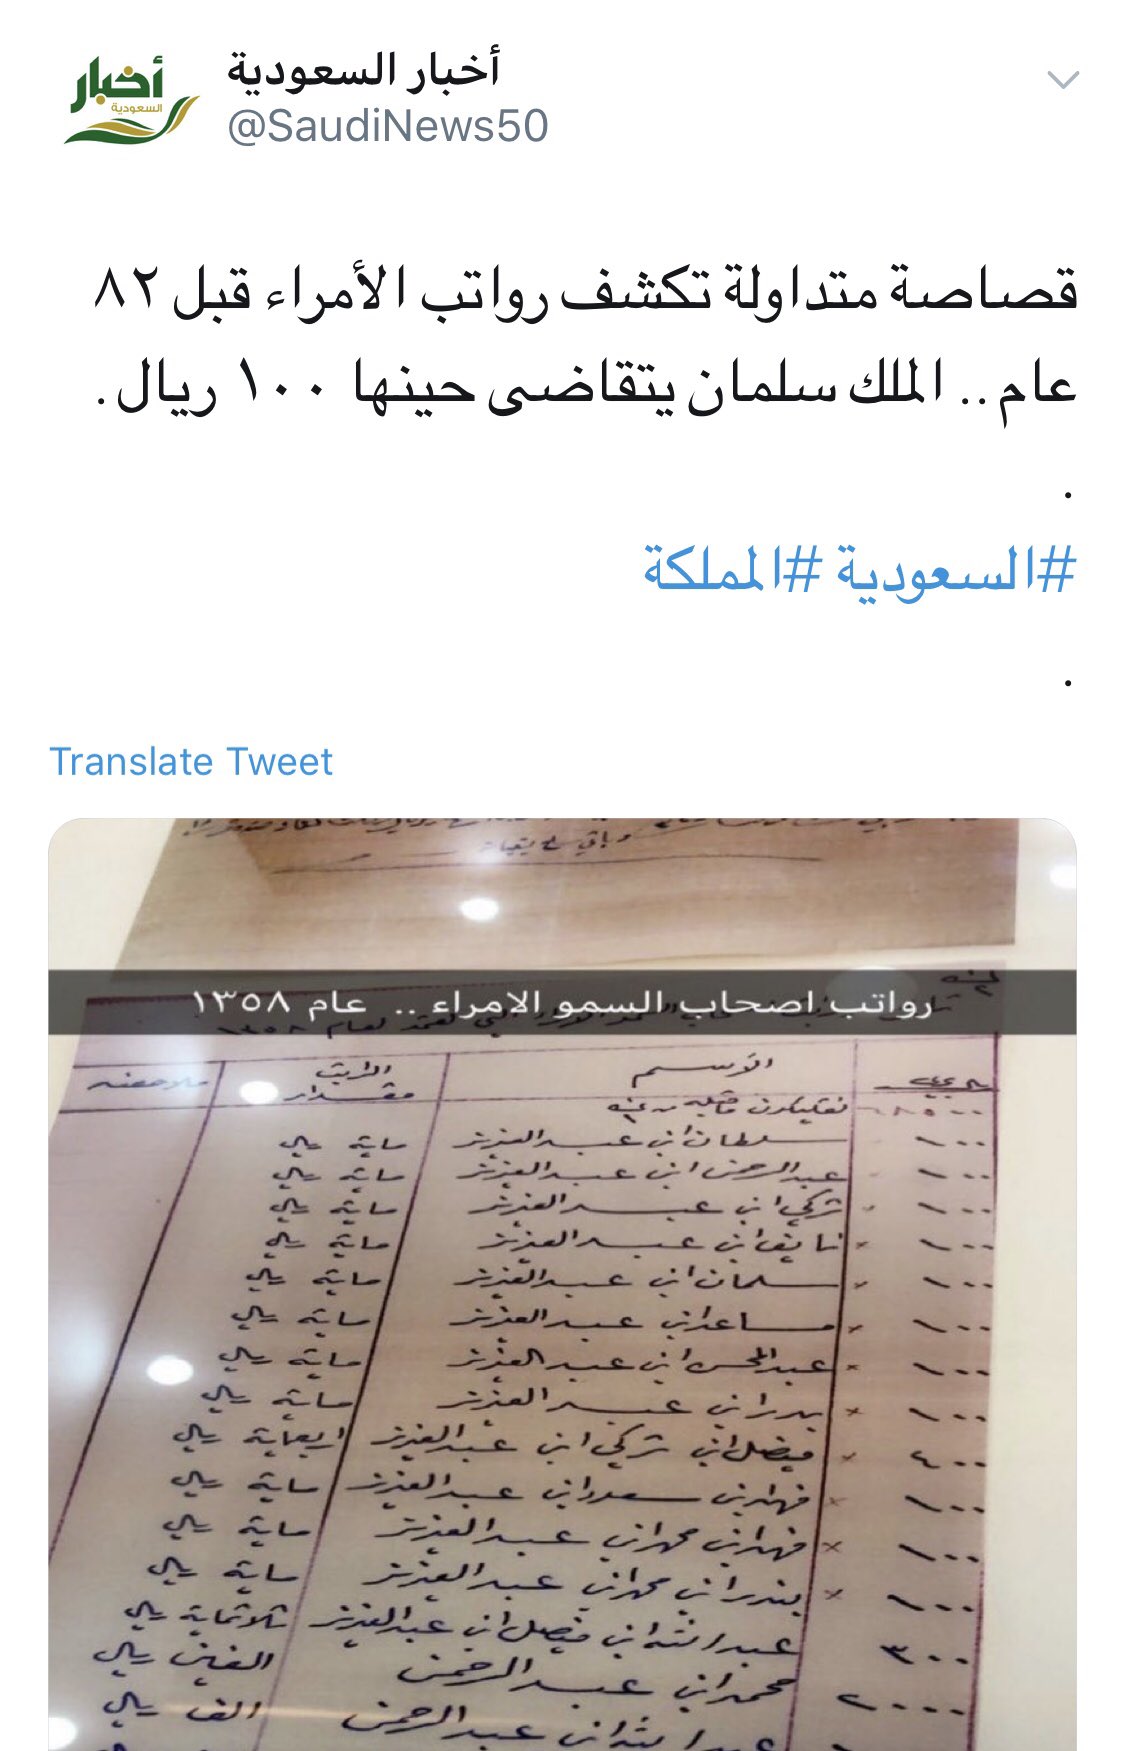 أخبار السعودية
أخبار السعودية
@SaudiNews50
قصاصة متداولة تكشف رواتب الأمراء قبل ٨٢
عام .. الملك سلمان يتقاضى حينها ١٠٠ ريال.
.
#السعودية #المملكة
.
Translate Tweet
رواتب اصحاب السمو الامراء .. عام ١٣٥٨
الاسم مقدار الراتب
١٠٠ سلطان ابن عبد العزيز ماية ريال
١٠٠ عبد الرحمن ابن عبد العزيز ماية ريال
١٠٠ تركي ابن عبد العزيز ماية ريال
١٠٠ نايف ابن عبد العزيز ماية ريال
١٠٠ سلمان ابن عبد العزيز ماية ريال
١٠٠ مساعد ابن عبد العزيز ماية ريال
١٠٠ عبد المحسن ابن عبد العزيز ماية ريال
١٠٠ بدر ابن عبد العزيز ماية ريال
٤٠٠ فيصل ابن تركي ابن عبد العزيز اربعماية ريال
١٠٠ فهد ابن سعود ابن عبد العزيز ماية ريال
١٠٠ فهد ابن محمد ابن عبد العزيز ماية ريال
١٠٠ بندر ابن محمد ابن عبد العزيز ماية ريال
٣٠٠ عبد الله ابن فيصل ابن عبد العزيز ثلاثماية ريال
٢٠٠٠ محمد ابن عبد الرحمن الفين ريال
عبد الله ابن عبد الرحمن الف ريال